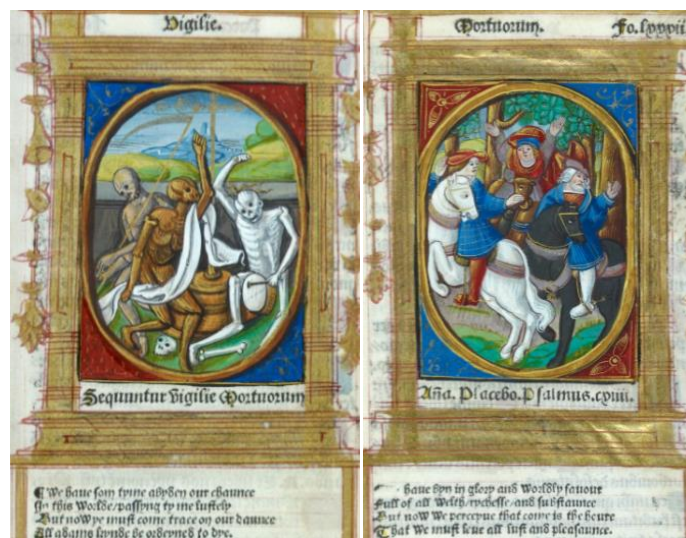 Vigilie.
Sequuntur Vigilie Mortuorum
¶ We haue som tyme abyden our chaunce
In this Worlde / passyng tyme lustely
But now ye must come trace on our daunce
All adams kynde be ordeyned to dye.
Mortuorum. Fo. lxxxii
Aña. Placebo. Psalmus. cxiiii.
haue byn in glory and Worldly fauour
Full of all Welth / rychesse / and substaunce
But now We perceyue that come is the houre
That We must leue all lust and pleasaunce.